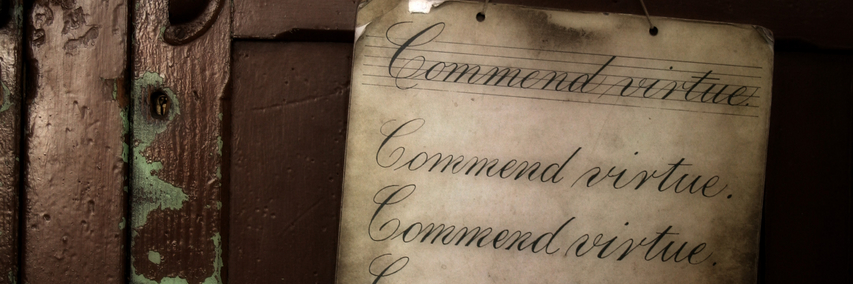 Commend virtue.
Commend virtue.
Commend virtue.
C